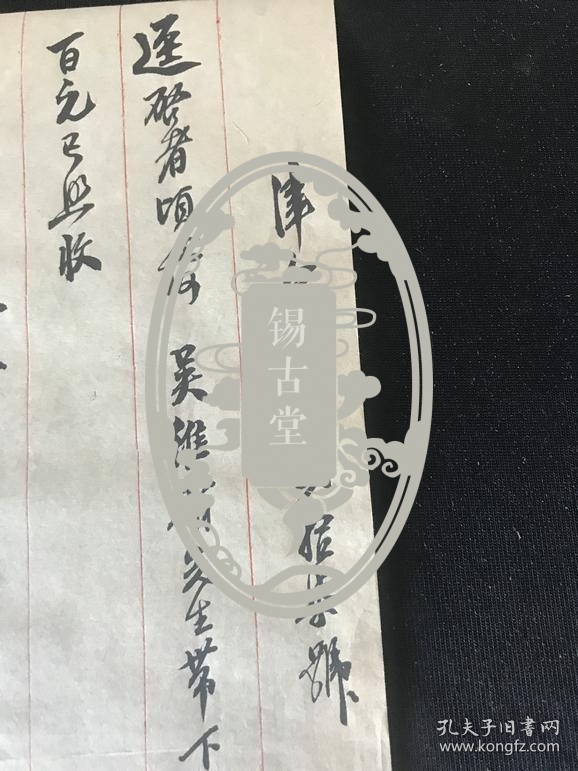 津
拾柒號
逕啓者頃奉 吳維 先生帶下
百元已照收
锡古堂
孔夫子旧书网
www.kongfz.com